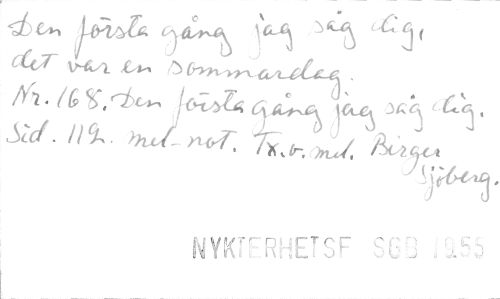 Den första gång jag såg dig,
det var en sommardag.
Nr. 168. Den första gång jag såg dig.
Sid. 112. mel-not. Tx. o. mel. Birger
Sjöberg.
NYKTERHETSF SGB 1955